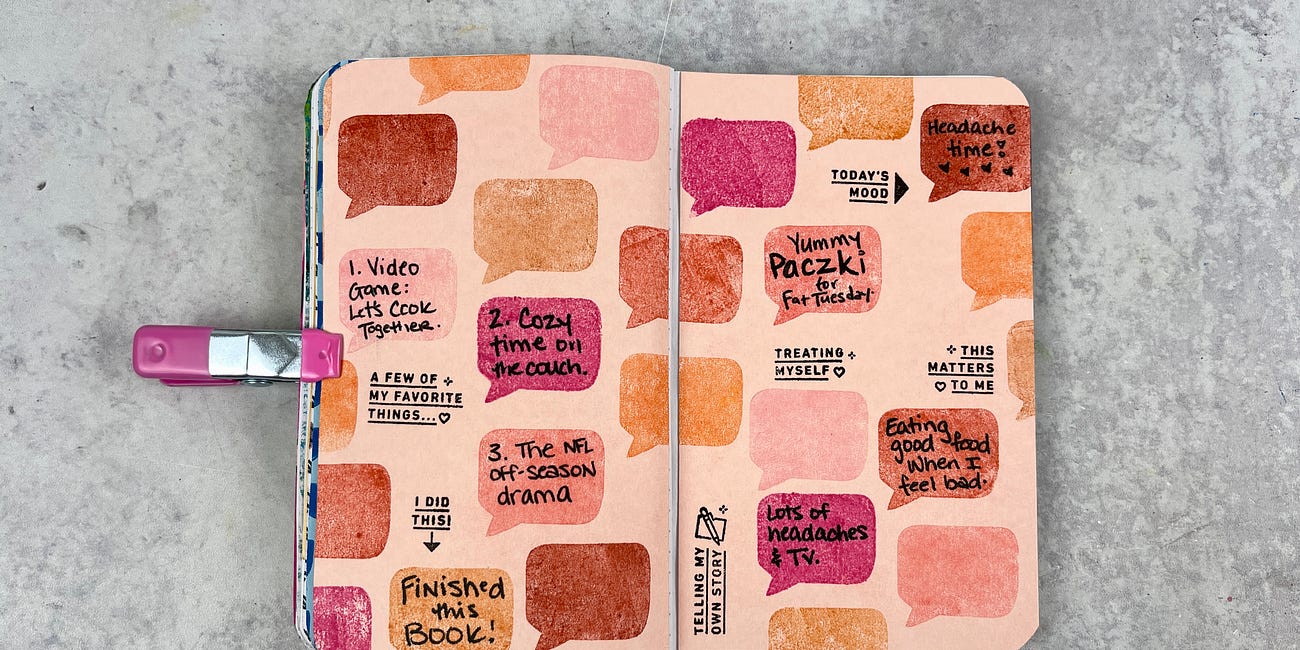 1. Video
Game:
Let's Cook
Together.
2. Cozy
time on
the couch.
A FEW OF
MY FAVORITE
THINGS...
3. The NFL
off-season
drama
I DID
THIS!
Finished
this
Book!
Headache
time!
TODAY'S
MOOD
Yummy
Paczki
for
Fat Tuesday.
TREATING
MYSELF
THIS
MATTERS
TO ME
Eating
good food
when I
feel bad.
Lots of
headaches
& TV.
TELLING MY
OWN STORY